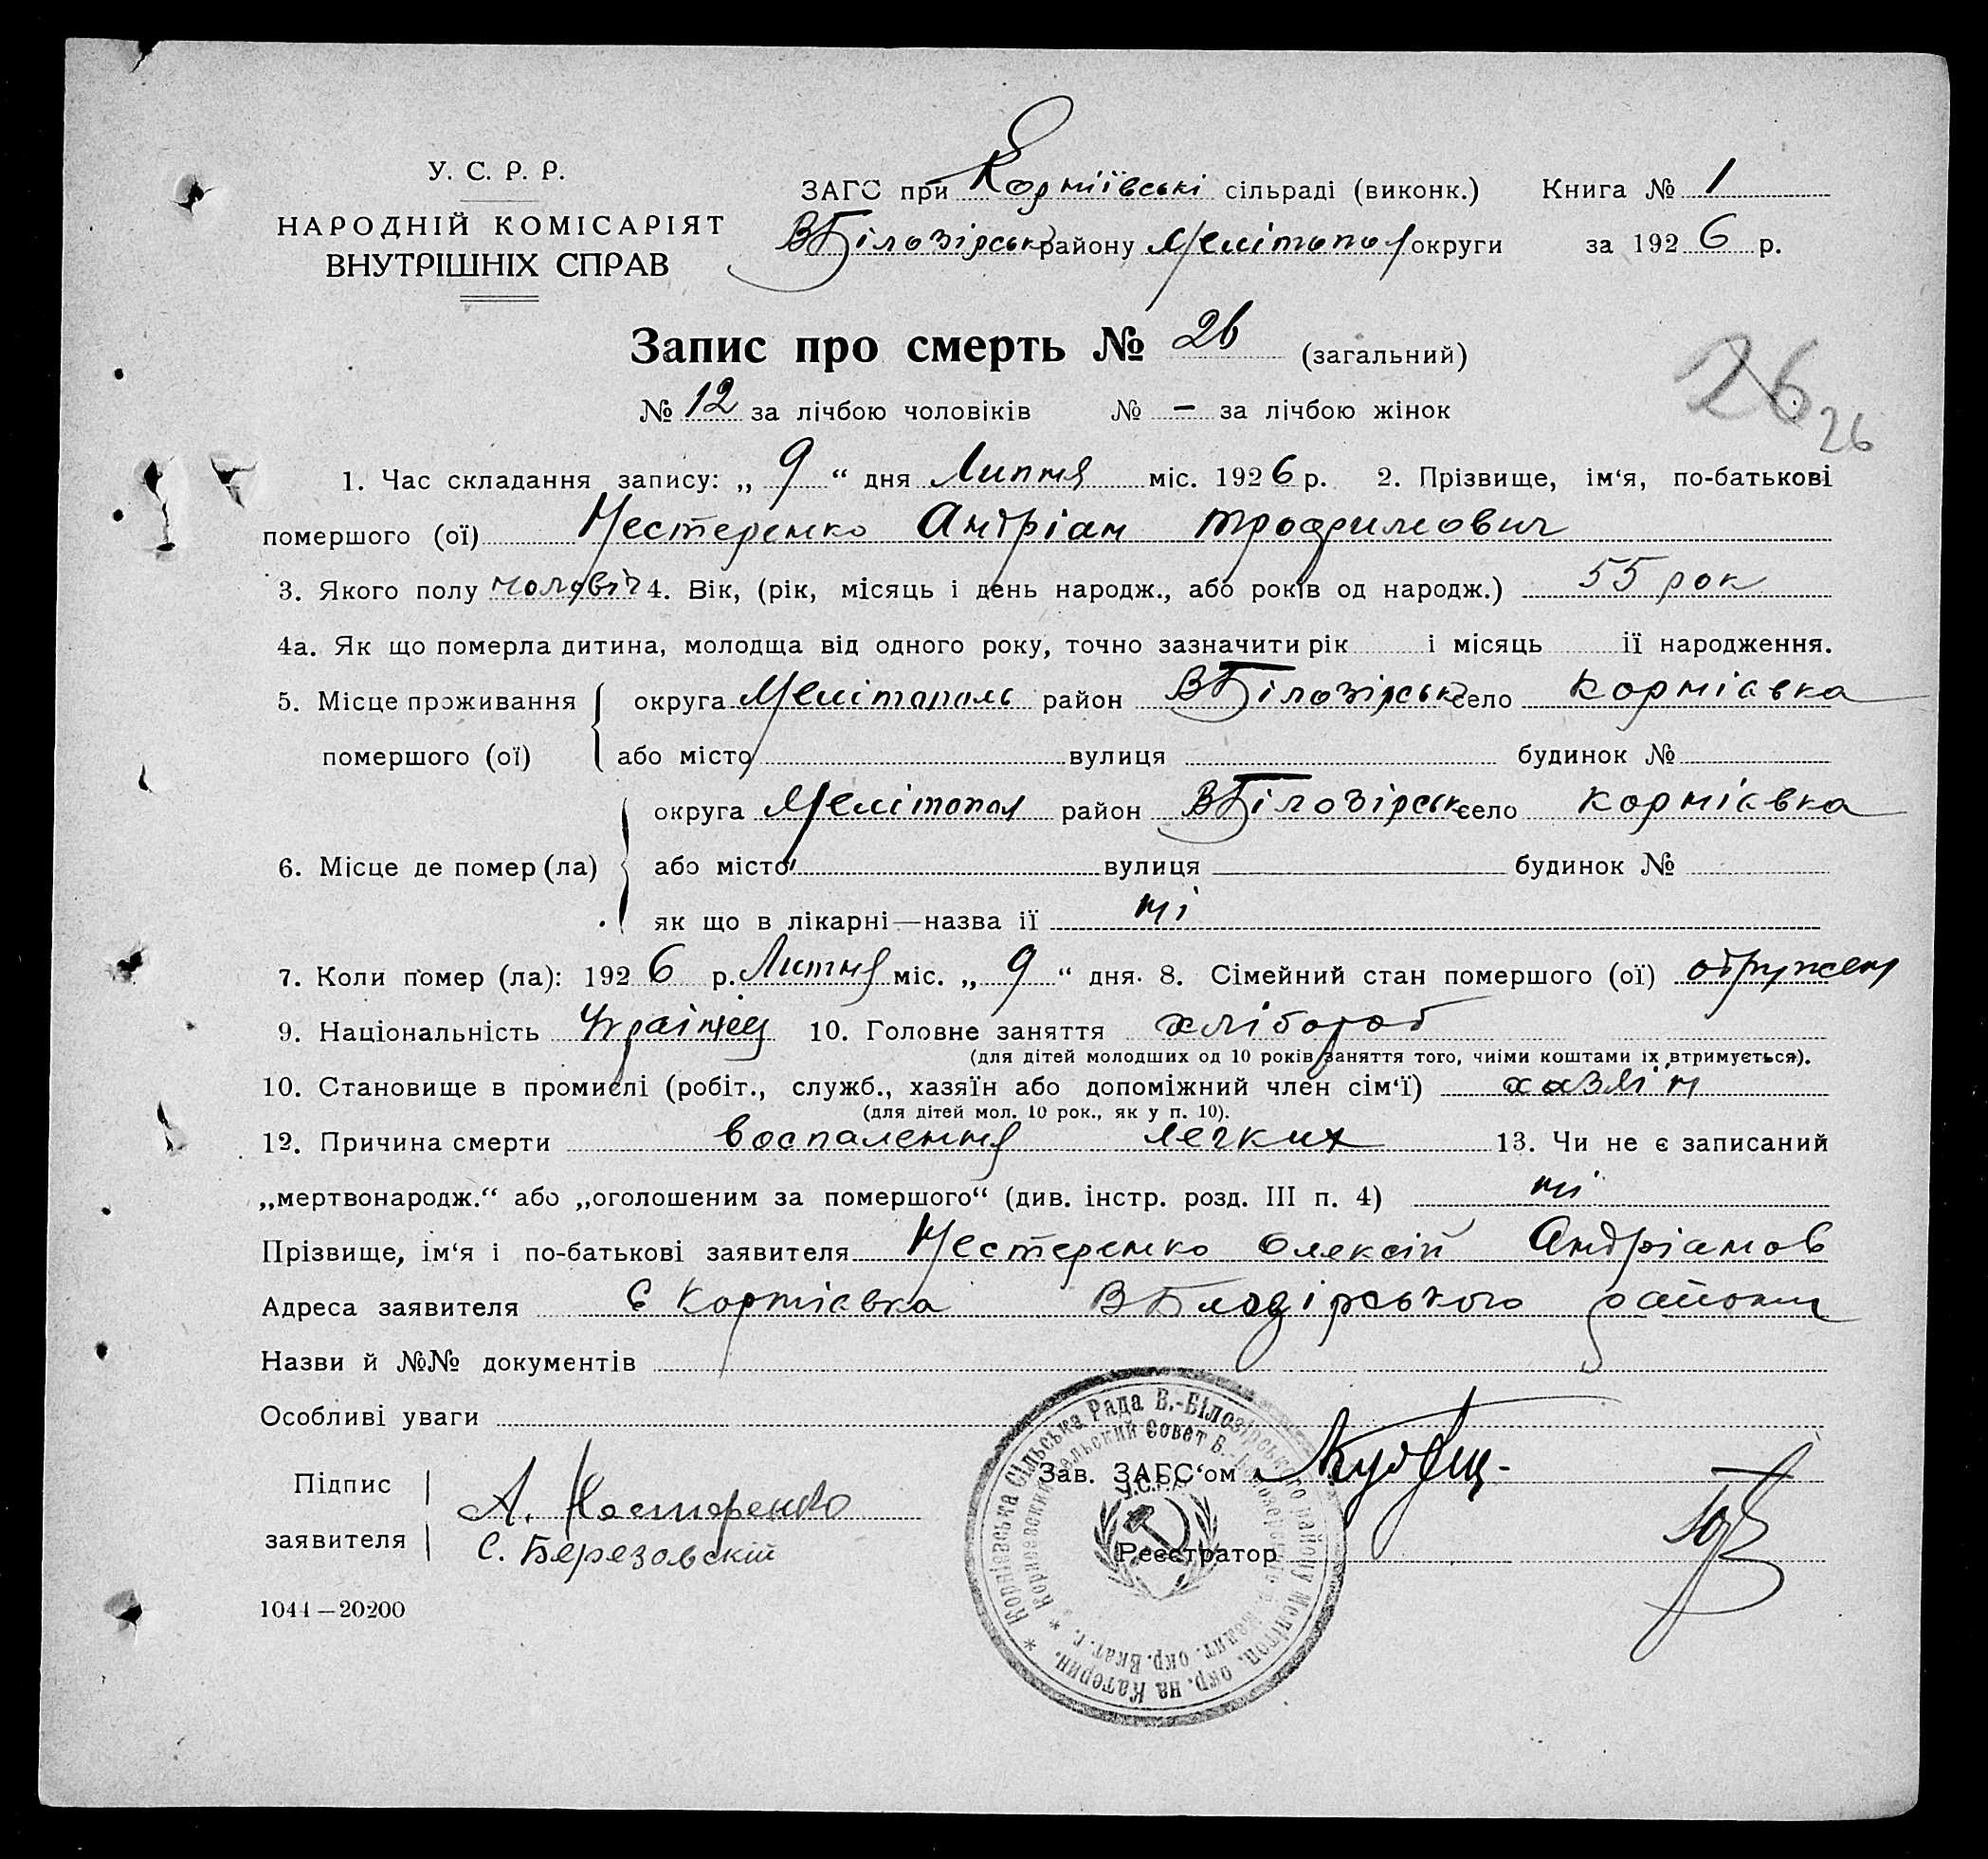 У. С. Р. Р.
НАРОДНІЙ КОМІСАРІЯТ
ВНУТРІШНІХ СПРАВ
ЗАГС при Корніївські сільраді (виконк.) Книга № 1
ВБілозірськ району Мелітопол округи за 1926 р.
Запис про смерть № 26 (загальний)
26
26
№ 12 за лічбою чоловіків № – за лічбою жінок
1. Час складання запису: „ 9 “ дня Липня міс. 1926 р. 2. Прізвище, ім‘я, по-батькові
помершого (ої) Нестеренко Андріан Трофимович
3. Якого полу чоловіч 4. Вік, (рік, місяць і день народж., або років од народж.) 55 рок
4а. Як що померла дитина, молодща від одного року, точно зазначити рік і місяць її народження.
5. Місце проживання помершого (ої) округа Мелітополь район ВБілозірськ село Корніевка
або місто вулиця будинок №
6. Місце де помер (ла) округа Мелітопол район ВБілозірськ село Корніевка
або місто вулиця будинок №
як що в лікарні—назва її ні
7. Коли помер (ла): 1926 р. Липня міс. „ 9 “ дня. 8. Сімейний стан помершого (ої) одружен
9. Національність Українец 10. Головне заняття хлібороб
(для дітей молодших од 10 років заняття того, чиїми коштами їх втримується).
10. Становище в промислі (робіт., служб., хазяїн або допоміжний член сім‘ї) хазяїн
(для дітей мол. 10 рок., як у п. 10).
12. Причина смерти воспалення легких 13. Чи не є записаний
„мертвонародж.“ або „оголошеним за помершого“ (див. інстр. розд. III п. 4) ні
Прізвище, ім‘я і по-батькові заявителя Нестеренко Олексій Андріанов
Адреса заявителя с Корніевка ВБілозірського району
Назви й №№ документів
Особливі уваги
Підпис заявителя А. Нестеренко
С. Березовскій
Зав. ЗАГС‘ом
Реєстратор
1044—20200
* Корніевська Сільська Рада В.-Білозірського району Мелітоп. окр. на Катерин.
У.С.Р.Р.